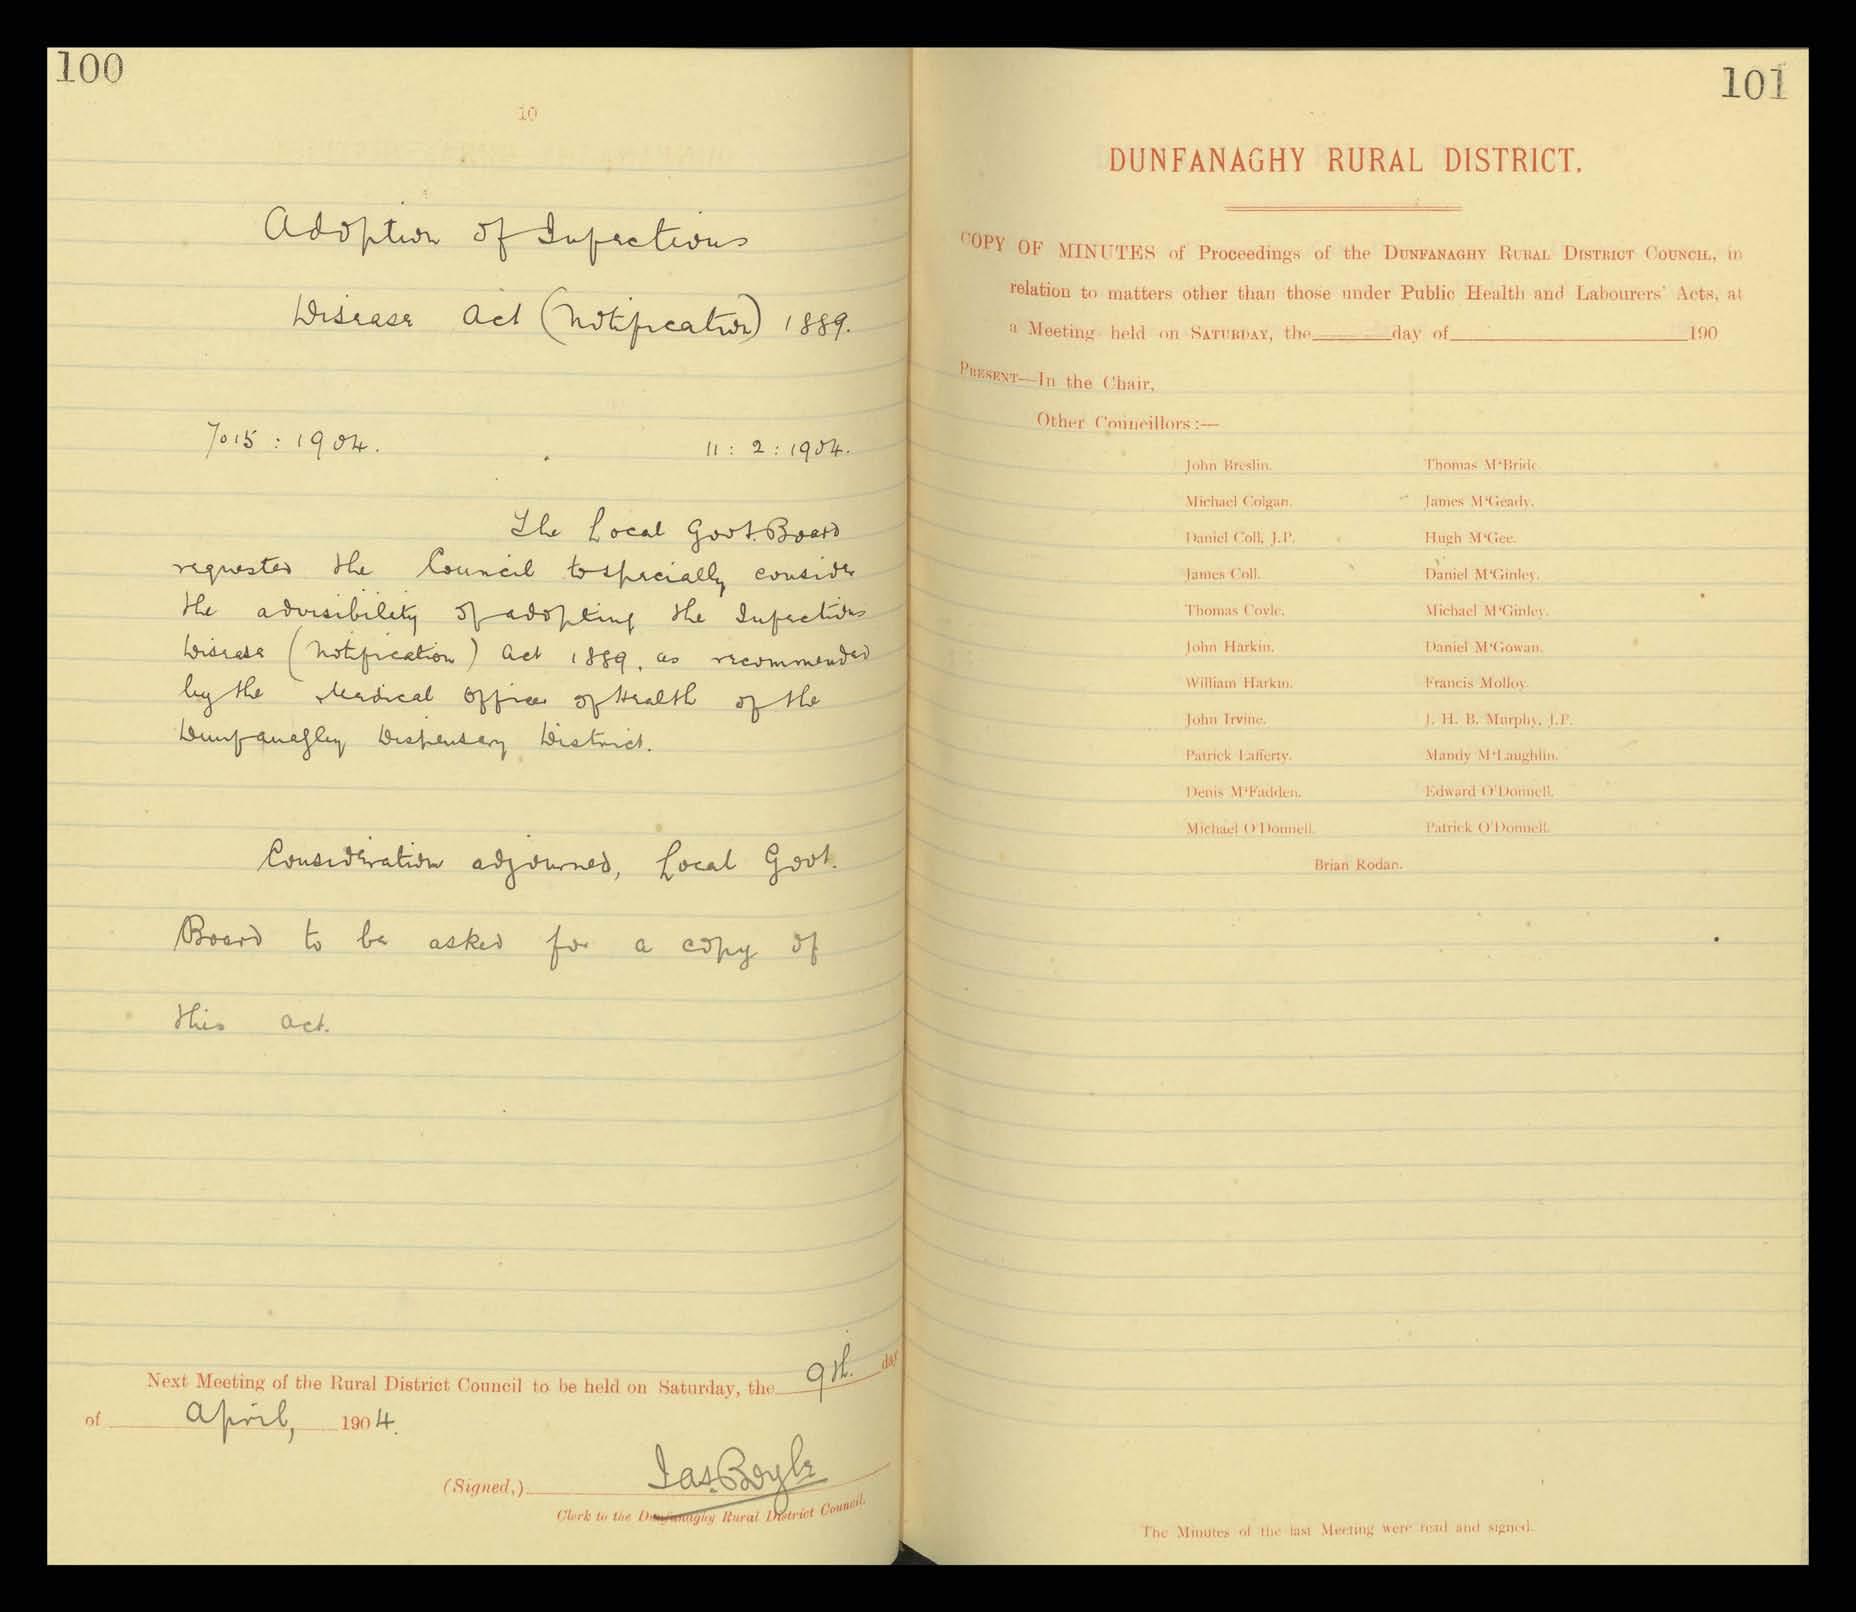 100
10
Adoption of Infectious
Disease Act (Notification) 1889.
7015 : 1904.
11 : 2 : 1904.
The Local Govt. Board
requested the Council to specially consider
the advisibility of adopting the Infectious
Disease (Notification) Act 1889, as recommended
by the Medical Officer of Health of the
Dunfanaghy Dispensary District.
Consideration adjourned, Local Govt.
Board to be asked for a copy of
this Act.
Next Meeting of the Rural District Council to be held on Saturday, the 9th. day
of April, 1904.
(Signed,) Jas. Boyle
Clerk to the Dunfanaghy Rural District Council.
101
DUNFANAGHY RURAL DISTRICT.
COPY OF MINUTES of Proceedings of the DUNFANAGHY RURAL DISTRICT COUNCIL, in
relation to matters other than those under Public Health and Labourers' Acts, at
a Meeting held on SATURDAY, the day of 190
PRESENT—In the Chair,
Other Councillors:—
John Breslin. Thomas M'Bride.
Michael Colgan. James M'Geady.
Daniel Coll, J.P. Hugh M'Gee.
James Coll. Daniel M'Ginley.
Thomas Coyle. Michael M'Ginley.
John Harkin. Daniel M'Gowan.
William Harkin. Francis Molloy.
John Irvine. J. H. B. Murphy, J.P.
Patrick Lafferty. Mandy M'Laughlin.
Denis M'Fadden. Edward O'Donnell.
Michael O'Donnell. Patrick O'Donnell.
Brian Rodan.
The Minutes of the last Meeting were read and signed.